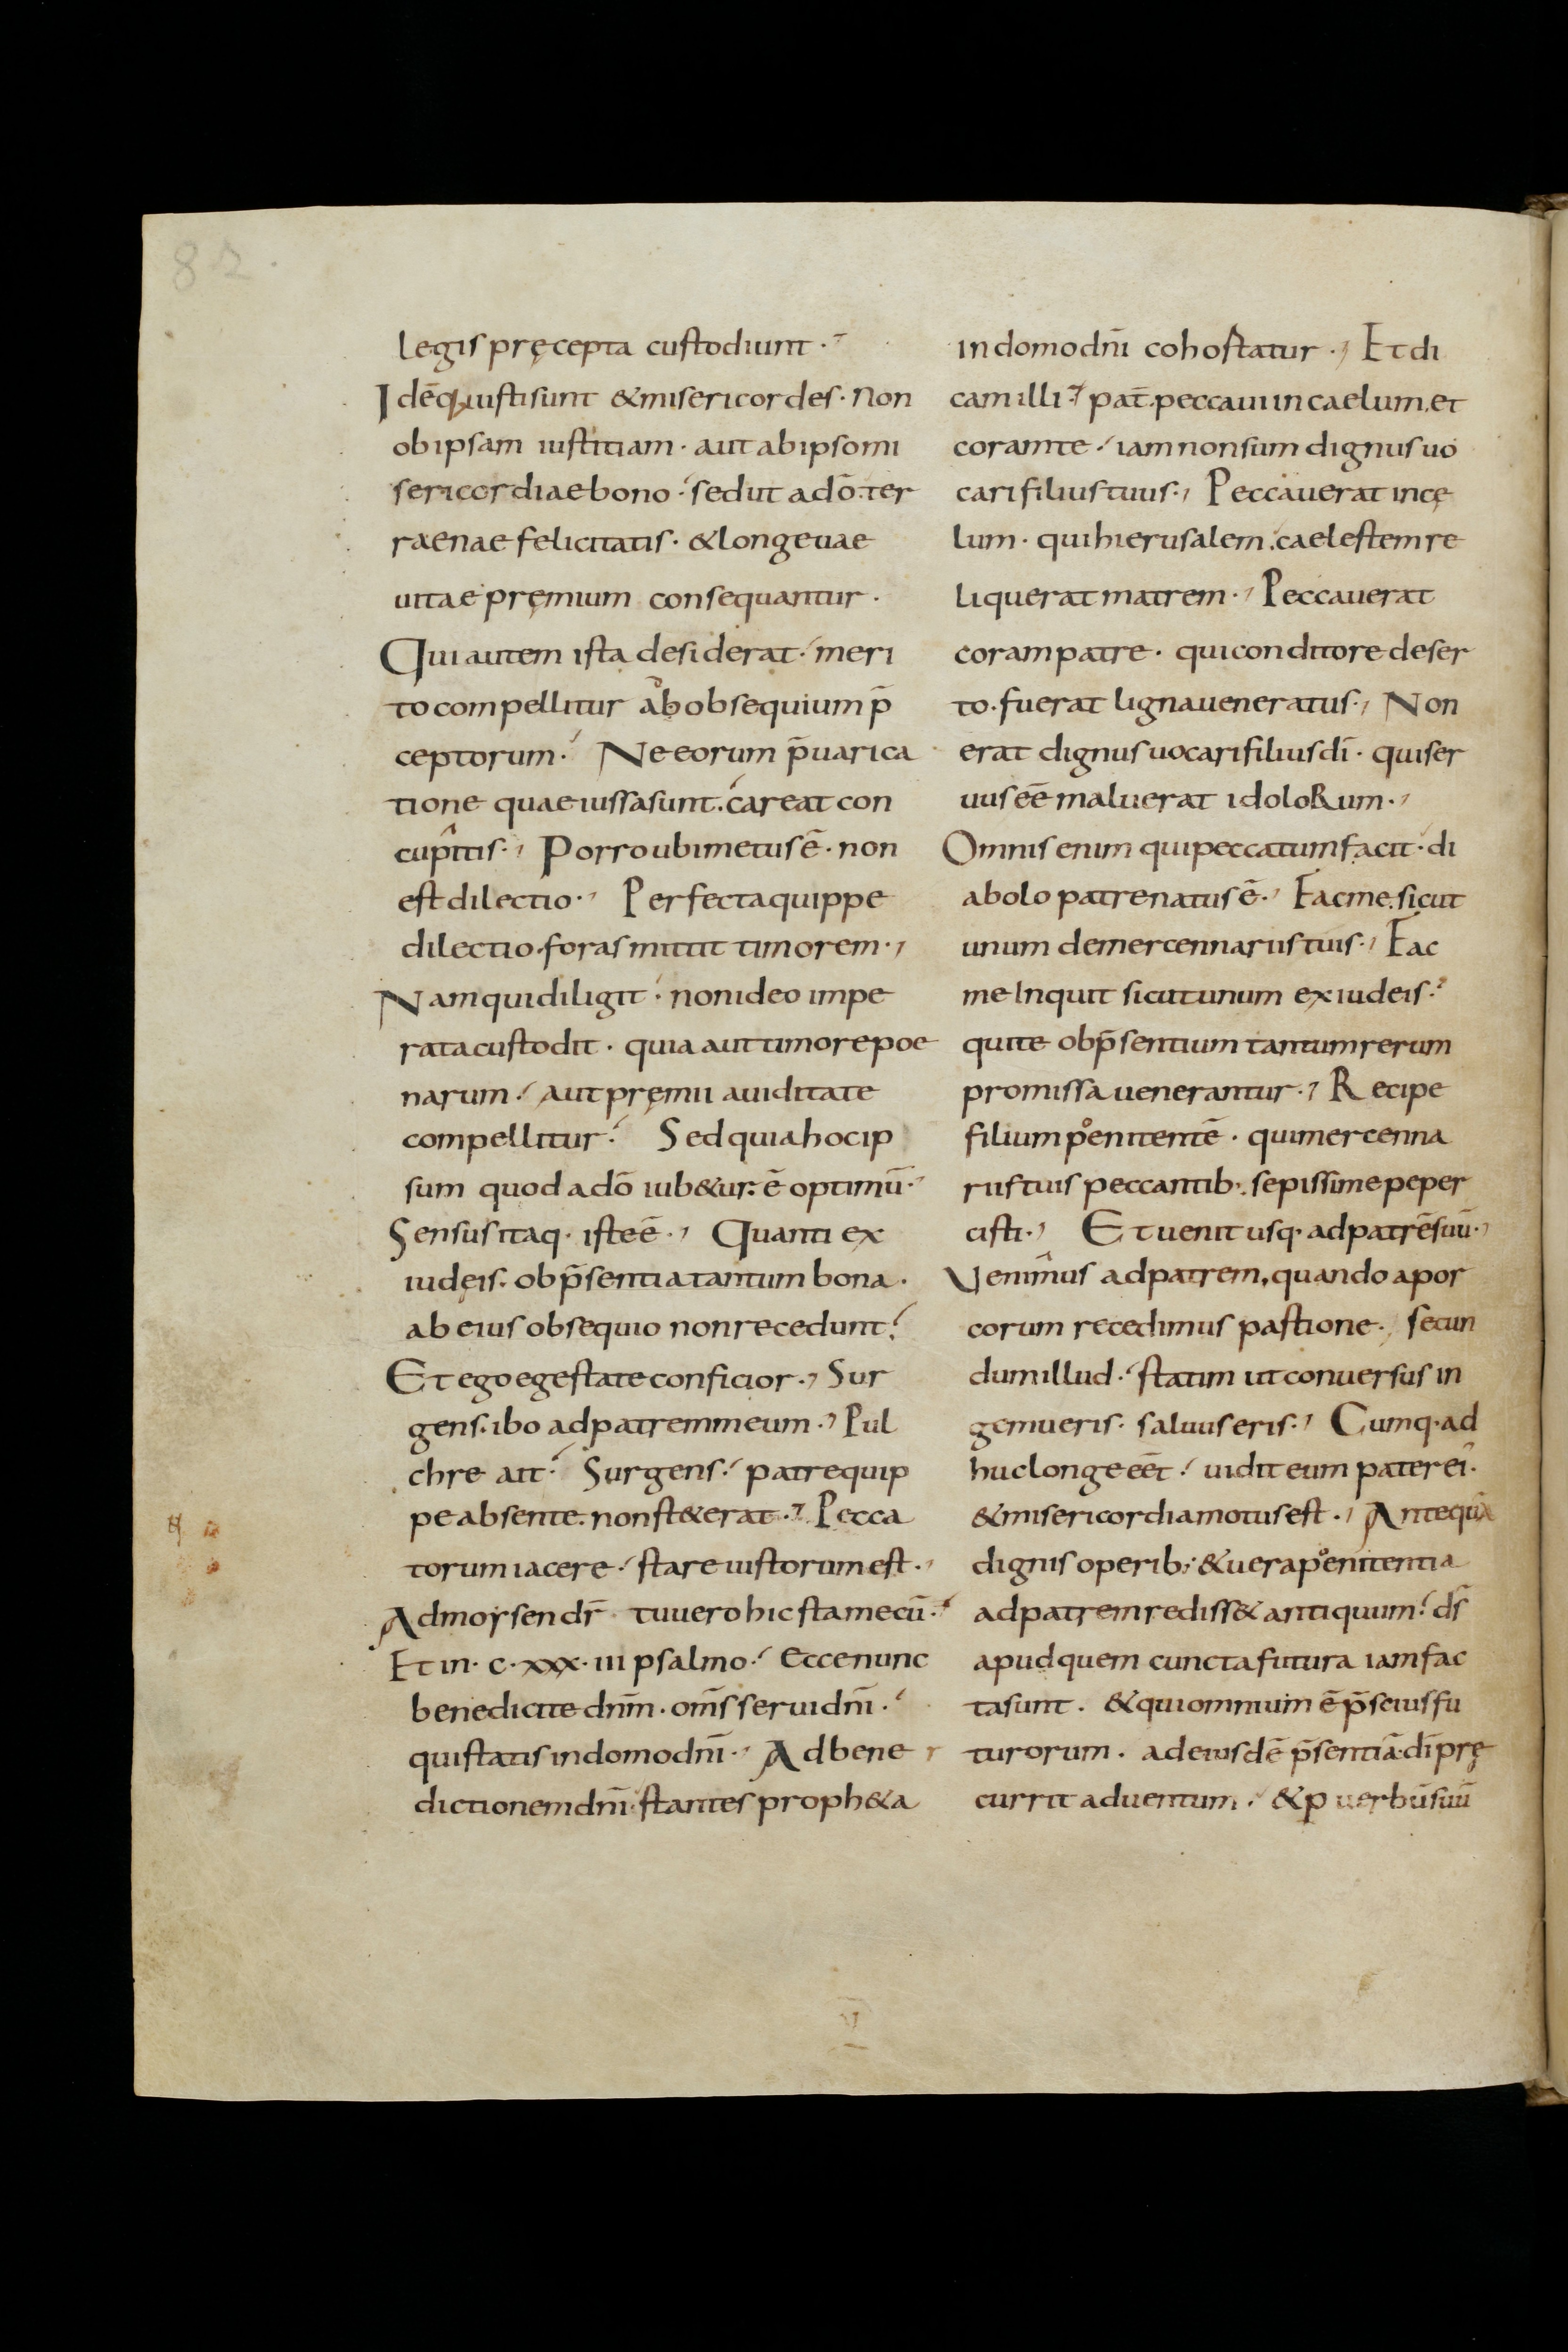 82.
legis pręcepta custodiunt.
Idēq; iusti sunt & misericordes. Non
ob ipsam iustitiam. aut ab ipso mi
sericordiae bono. sed ut a dō. ter
raenae felicitatis. & longeuae
uitae pręmium consequantur.
Qui autem ista desiderat. meri
to compellitur ab obsequium p̄
ceptorum. Ne eorum p̄uarica
tione quae iussa sunt. careat con
cupitis. Porro ubi metus ē. non
est dilectio. Perfecta quippe
dilectio. foras mittit timorem.
Nam qui diligit. non ideo impe
rata custodit. quia aut timore poe
narum. aut pręmii auiditate
compellitur. Sed quia hoc ip
sum quod a dō iub&ur. ē optimū.
Sensus itaq. iste ē. Quanti ex
iudęis. ob p̄sentia tantum bona.
ab eius obsequio non recedunt.
Et ego egestate conficior. Sur
gens. ibo ad patrem meum. Pul
chre ait. Surgens. patre quip
pe absente. non st&erat. Pecca
torum iacere. stare iustorum est.
Ad moysen dr̄ tu uero hic sta mecū.
Et in. c. xxx. iii psalmo. Ecce nunc
benedicite dnm̄. om̄s serui dnī.
qui statis in domo dnī. Ad bene
dictionem dnī. stantes proph&a
in domo dnī cohostatur. Et di
cam illi. pat̄. peccaui in caelum. et
coram te. iam non sum dignus uo
cari filius tuus. Peccauerat in cę
lum. qui hierusalem. caelestem re
liquerat matrem. Peccauerat
coram patre. qui conditore deser
to. fuerat ligna ueneratus. Non
erat dignus uocari filius dī. qui ser
uus eē maluerat idoloRum.
Omnis enim qui peccatum facit. di
abolo patre natus ē. Fac me. sicut
unum de mercennariis tuis. Fac
me Inquit sicut unum ex iudeis.
qui te ob p̄sentium tantum rerum
promissa uenerantur. Recipe
filium poenitentē. qui mercenna
riis tuis peccantib. sepissime peper
cisti. Et uenit usq. ad patrē suū.
Uenimus ad patrem, quando a por
corum recedimus pastione. secun
dum illud. statim ut conuersus in
gemueris. saluus eris. Cumq. ad
huc longe eēt. uidit eum pater eī.
& misericordia motus est. Antequā
dignis operib; & uera poenitentia
ad patrem rediss& antiquum. ds̄
apud quem cuncta futura iam fac
ta sunt. & qui omnium ē p̄scius fu
turorum. ad eiusdē p̄sentiā. dī pręę
currit aduentum. & p uerbū suū